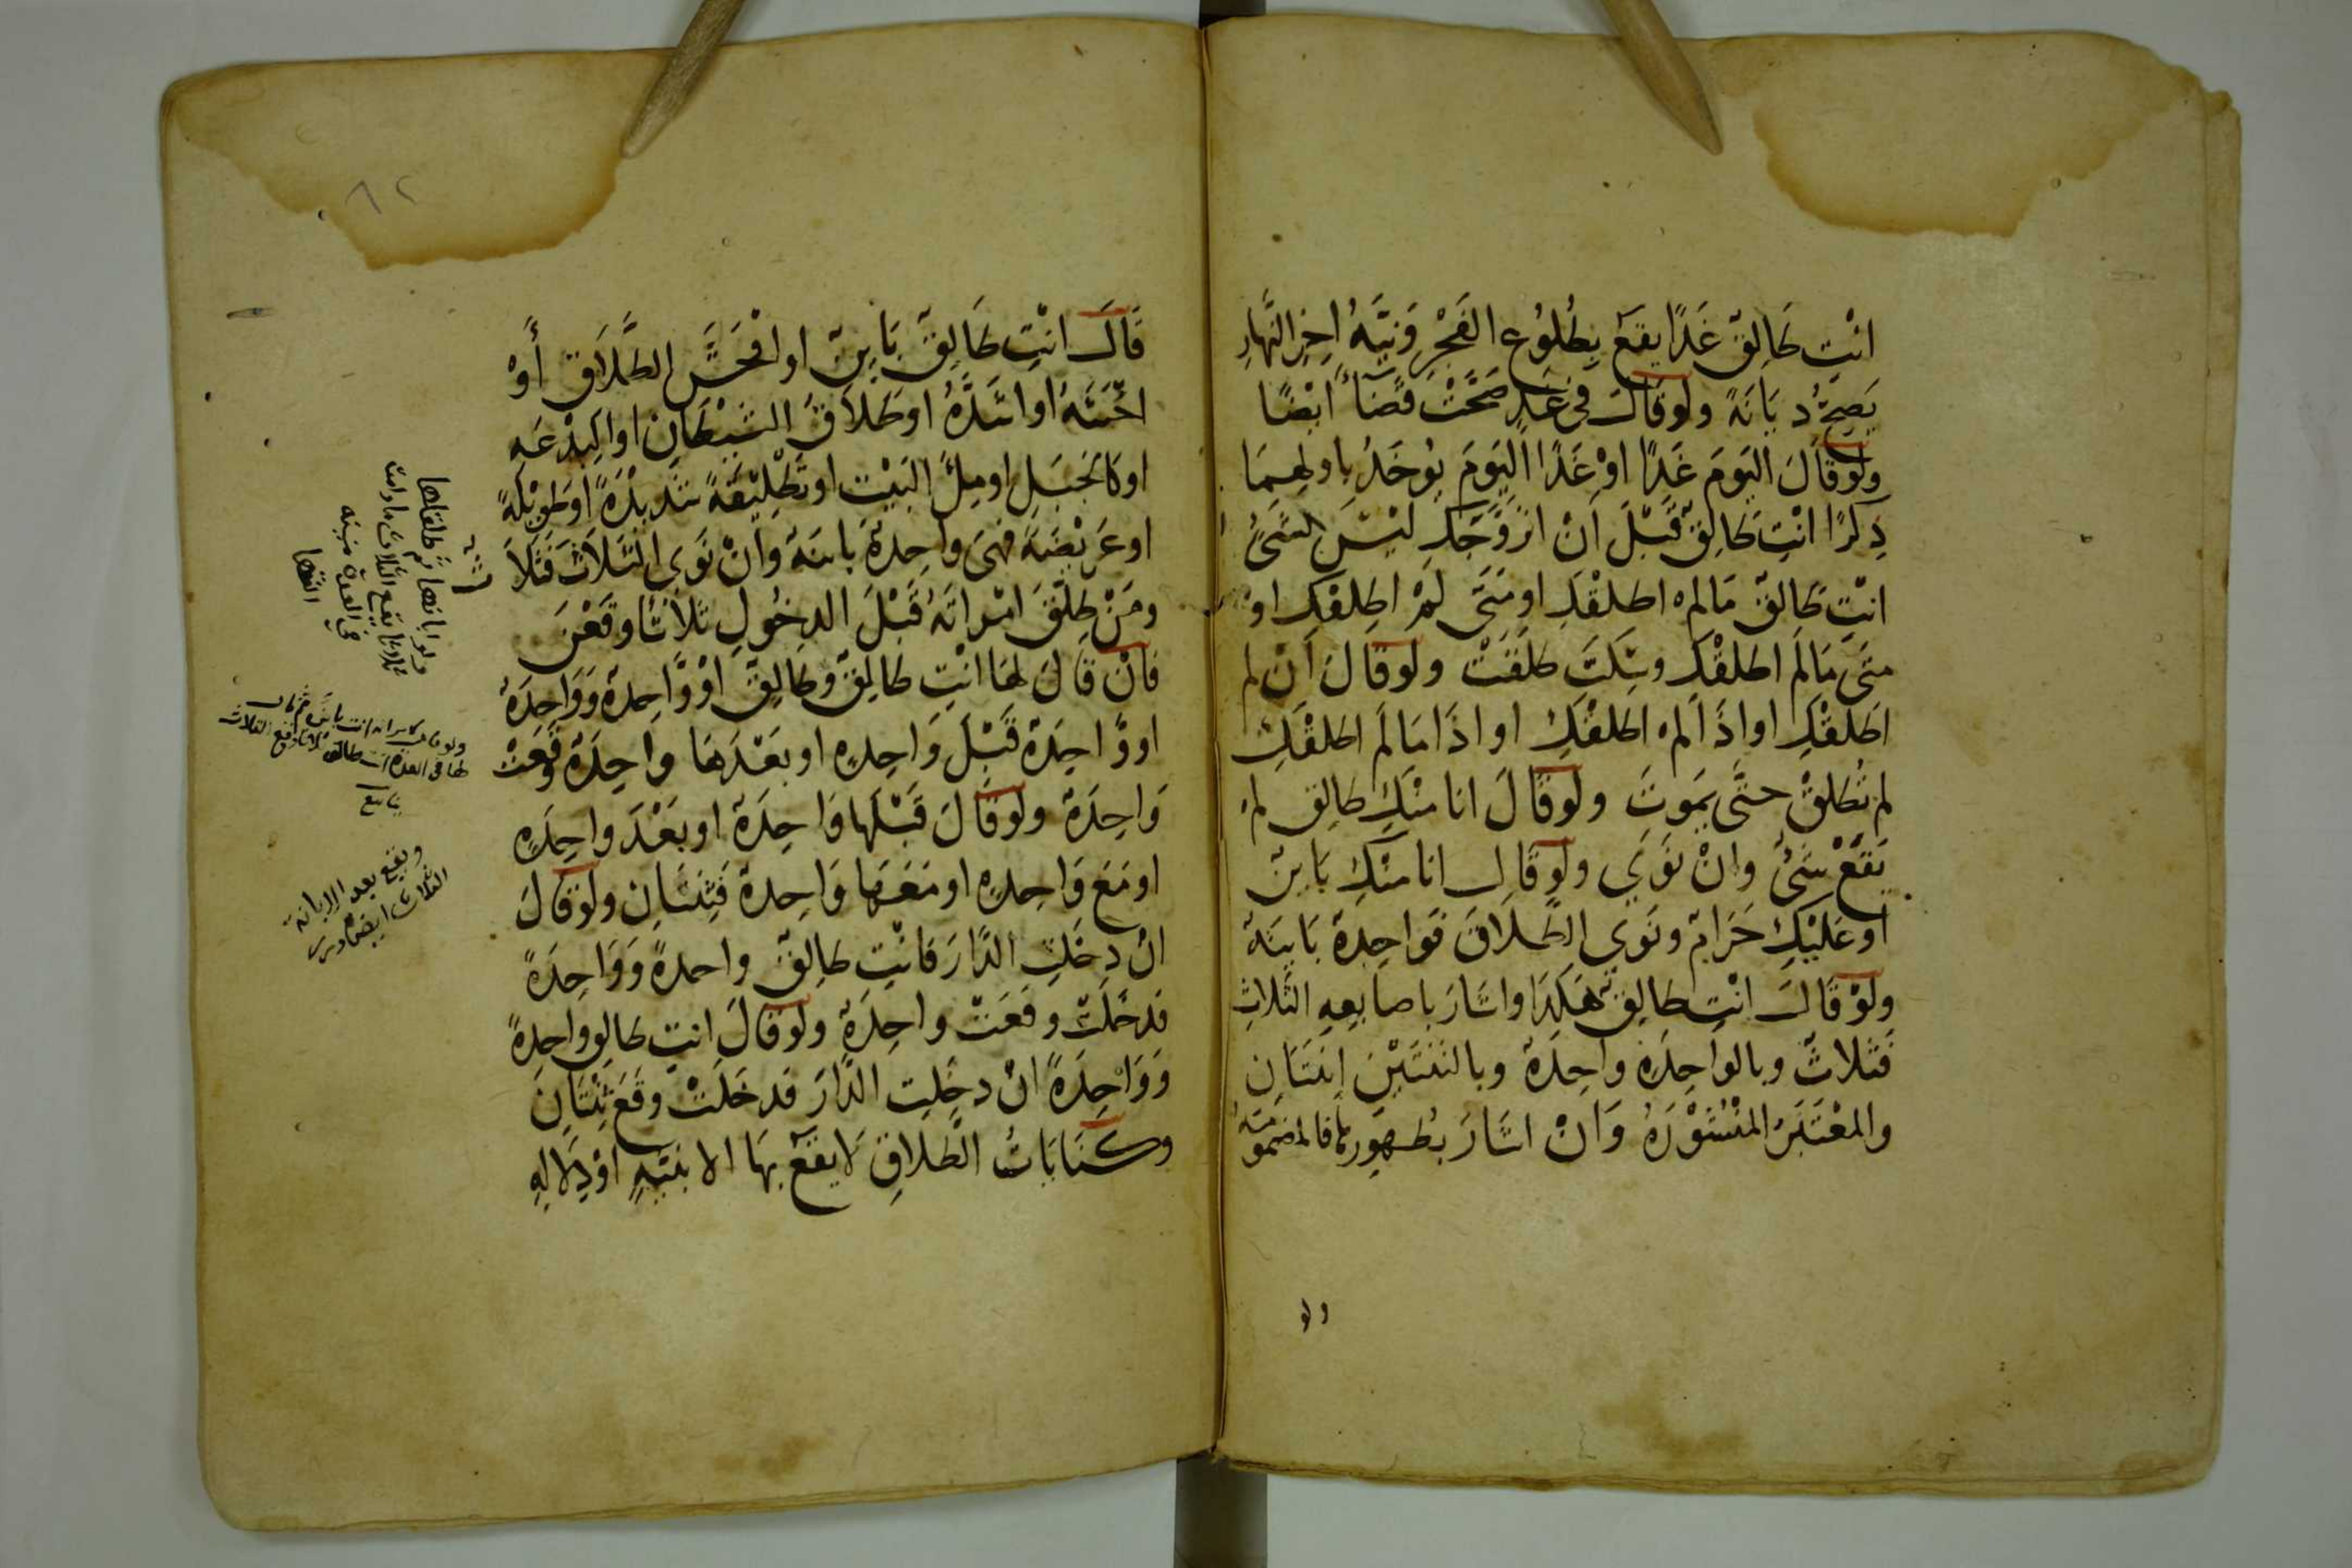 انْتِ طَالِقٌ غَدًا يَقَعُ بِطُلُوعِ الفَجْرِ وَنِيَّةُ اخِرِ النَّهَارِ
يَصِحُّ دِيَانَةً ولوقَالَ فى غَدٍ صَحَّتْ قَضَاءً ايْضًا
ولَوقَالَ اليَومَ غَدًا اوْ غَدًا اليَومَ يُوخَذُ باولهِمَا
ذِكرًا انْتِ طَالِقٌ قَبْلَ اَنْ اتزَوَّجَكِ ليْسَ بشَىءٍ
انْتِ طَالِقٌ مَالم اطلقْكِ اومَتَى لَمْ اطلِقْكِ اوْ
متَى مَالَم اطلقْكِ وسَكَتَ طلقَتْ ولوقَالَ اَنْ لم
اطلقْكِ او اذَا لم اطلقْكِ او اذَا مَا لَم اطلقْكِ
لم تُطَلقْ حتَّى يَموتَ ولوقَالَ انا منْكِ طَالِق لمْ
يَقَعْ شَىْءٌ وانْ نَوَي ولوقَالَ انا منْكِ بَاينٌ
اوعَليْكِ حَرَامٌ ونَوَى الطَّلاَقَ فوَاحِدةٌ بَايِنَةٌ
ولَوْقَالَ انْتِ طَالِقٌ هَكَذَا واشَارَ باصابِعِهِ الثَّلاثِ
فَثلاثٌ وبالوَاحِدَةِ وَاحِدَةٌ وبالثنتَيْنِ اثنَتَانِ
والمعْتَبَرُ المَنْشُوْرَةُ وَانْ اشَارَ بظُهورِهَا فالمَضْمُومَةُ
ولو
قَالَ انْتِ طَالِقٌ بَاينٌ او افْحَشَ الطَّلاَقِ أَوْ
اخْبَثَهُ اواشَدَّهُ اوطَلاَقَ الشَيْطَانِ اوالبِدْعَهِ
اوكَالجَبَلِ اومِلءَ البَيْتِ اوتَطْلِيْقَةً شَدِيْدَةً اوطَوِيْلَةً
اوعَرِيْضَةً فَهِىَ وَاحِدةٌ بَاينَةٌ وَانْ نَوَى الثَلاَثَ فَثَلاَثٌ
ومَنْ طَلَّقَ امْراتَهُ قَبْلَ الدخُولِ ثَلاَثًا وقَعْنَ
فَانْ قَالَ لهَا انْتِ طَالِقٌ وطَالِقٌ اوْ وَاحِدةٌ وَوَاحِدَةٌ
اووَاحِدَةٌ قَبْلَ وَاحِدةٍ اوبعَدْهَا وَاحِدَةٌ وقَعَتْ
وَاحِدَةٌ ولوقَالَ قَبْلَهَا وَاحِدَةٌ اوبعَدْ وَاحِدَةٍ
اومَعَ وَاحِدةٍ اومَعَهَا وَاحِدةٌ فَثِنتَانِ ولوقَالَ
انْ دخَلتِ الدَّارَ فَانْتِ طَالِقٌ واحدةً وَوَاحِدَةً
فدخَلَتْ وقَعَتْ واحِدَةٌ ولوقَالَ انتِ طالِق واحِدةً
وَوَاحِدَةً انْ دخَلتِ الدَّارَ فدخَلَتْ وقَعَ ثِنْتَانِ
وكنَايَاتُ الطَّلاقِ لاَ يقَعُ بهَا الا بنيَّهٍ اوْ دِلالهِ
ولو ابانها ثم طلقها
ثلاثا يقع الثلاث ما دامت
في العدة منيه
ولو قال لامراته انت باين ثم قال
لها في العدة انت طالق ثلاثا وقع الثلاث
ويقع بعد الابانة
الثلاث ايضا
٦٢